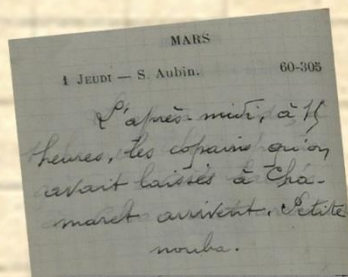 MARS
1 JEUDI — S. Aubin. 60-305
L'après-midi, à 15
heures, les copains qu'on
avait laissés à Cha-
maret arrivent. Petite
nouba.